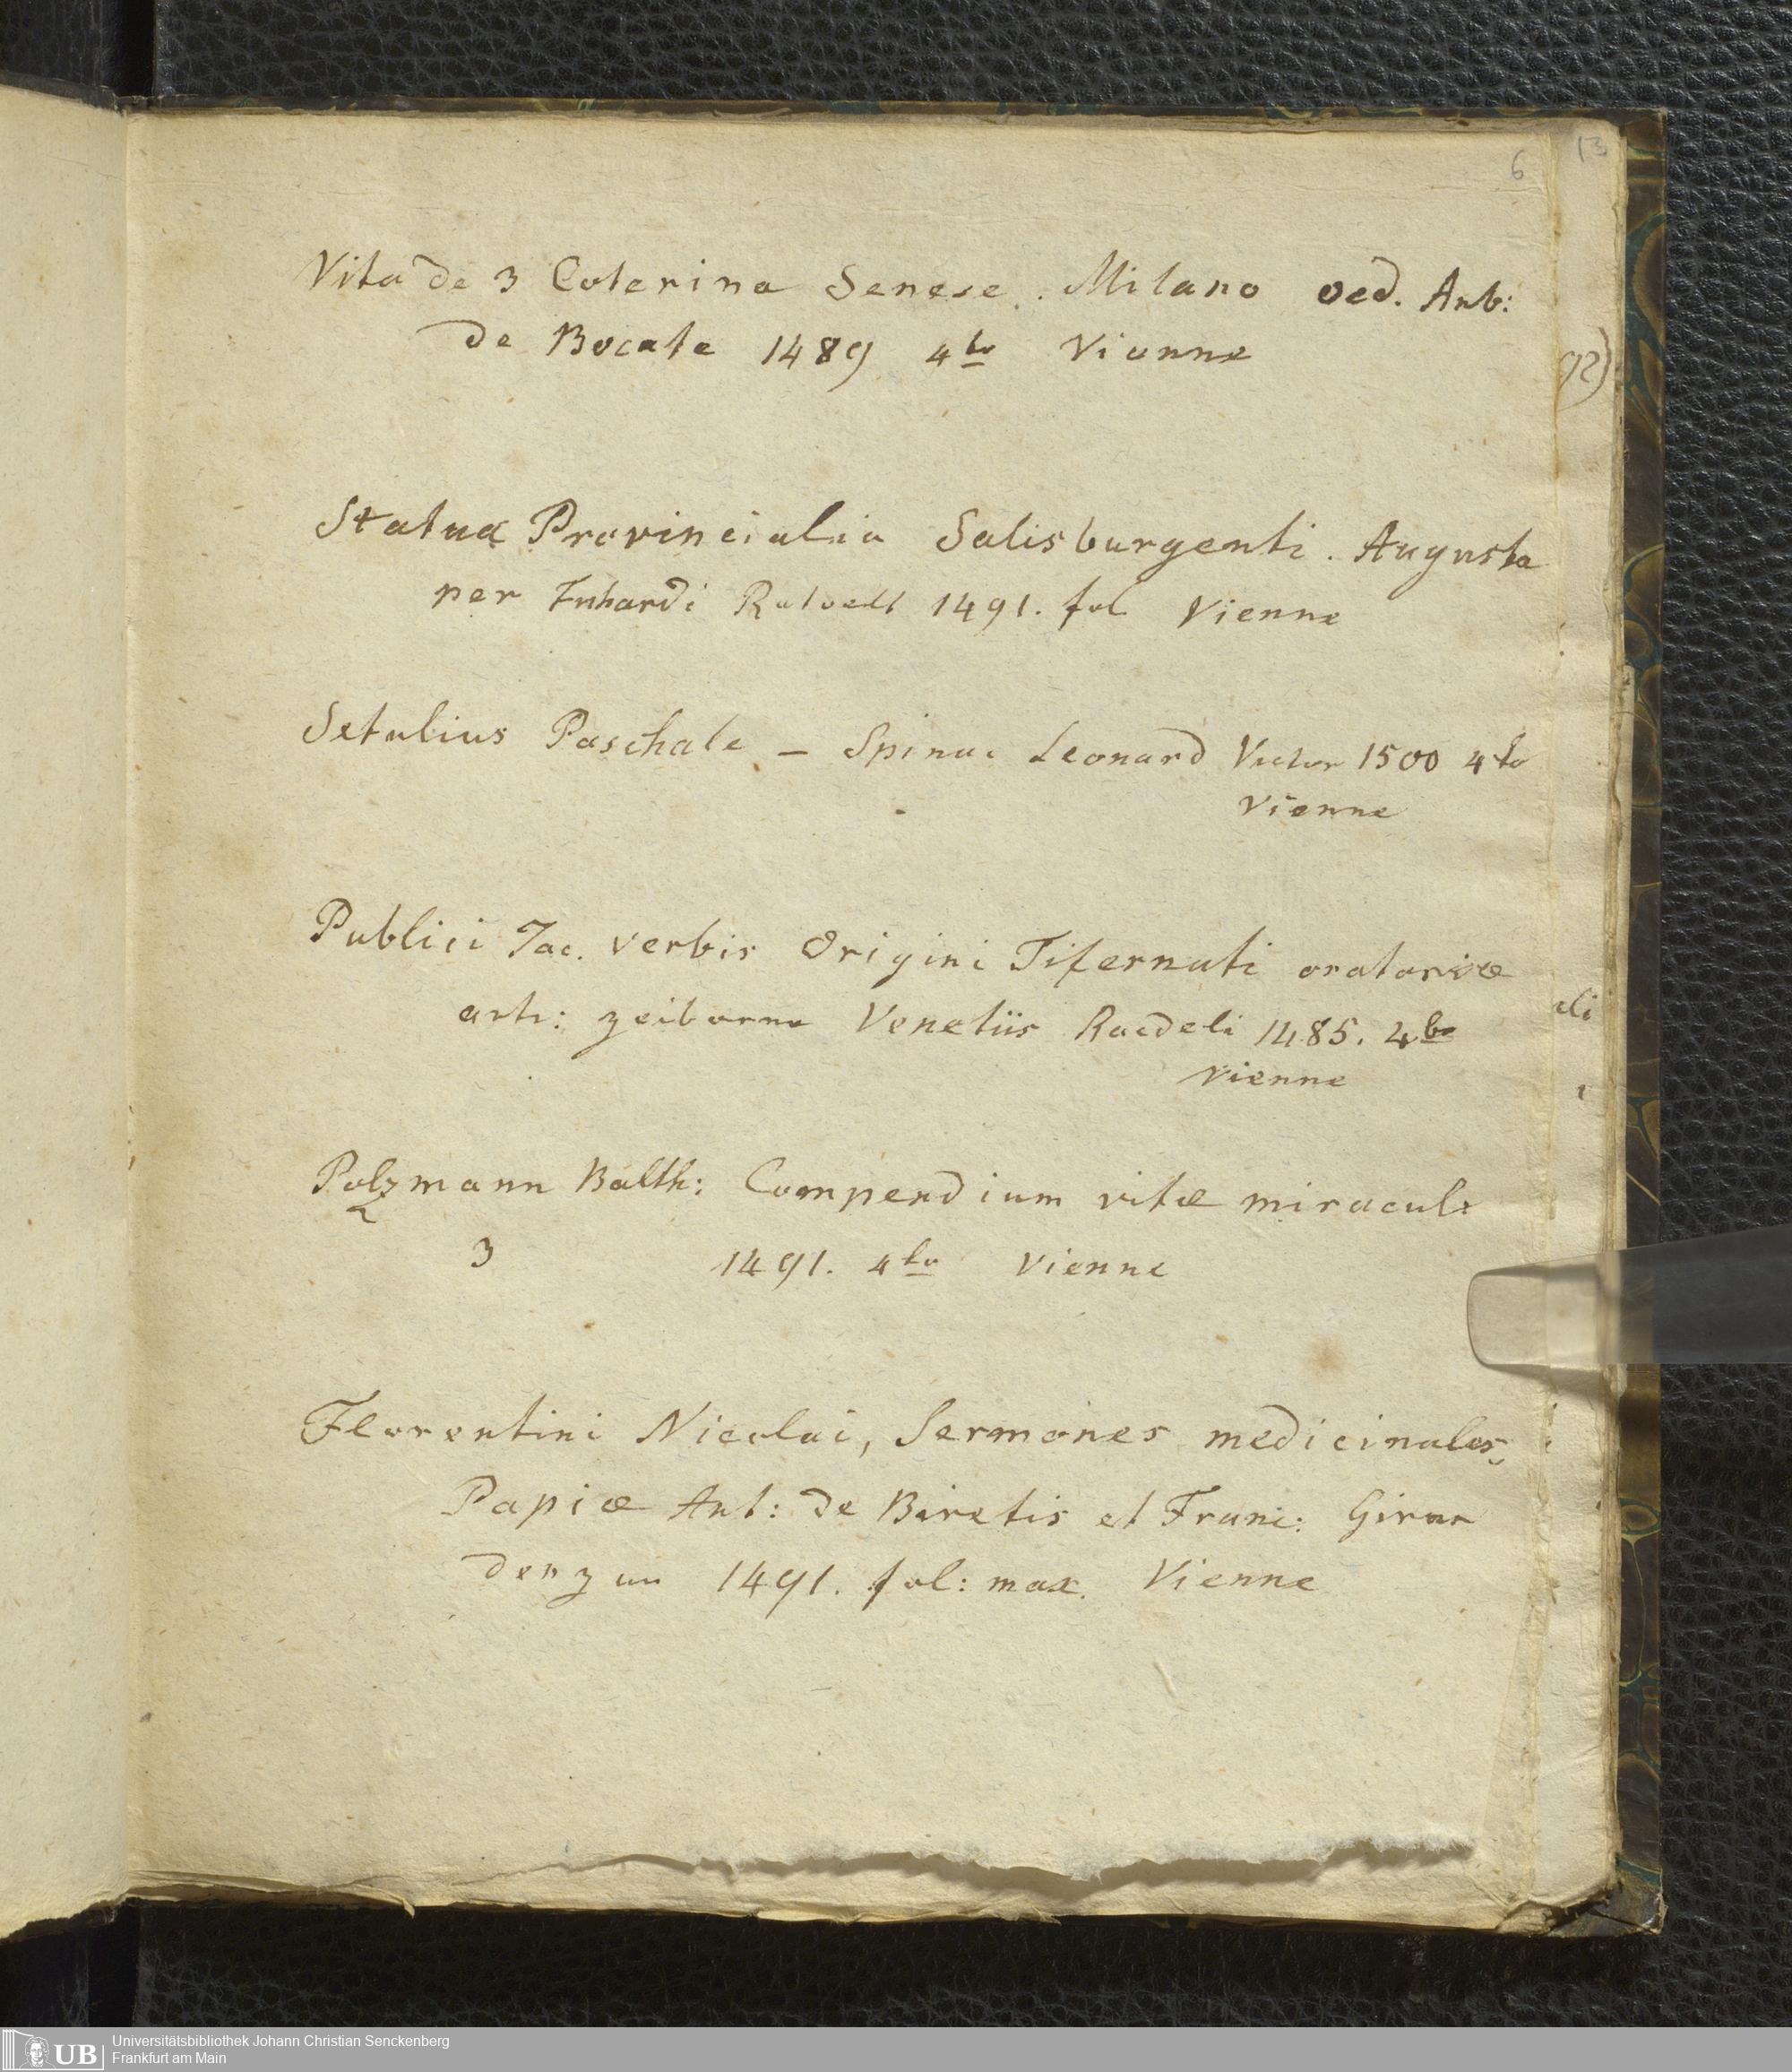 6
13
Vita de 3 Caterina Senese. Milano oed. Anb:
de Bocate 1489 4to Vienne
92)
Statua Provincialia Salisburgenti. Augusta
per Enhardi Ratoelt 1491. fol Vienne
Setulius Paschale - Spinac Leonard Victor 1500 4to
Vienne
Publici Jac. verbis Origini Tifernati oratoriæ
arti: Venetiis Racdeli 1485. 4to
Vienne
Polzmann Balth: Compendium vitæ miracul
3 1491. 4to Vienne
Florentini Nicolai, Sermones medicinales,
Papiæ Ant: de Biretis et Franc: Girar
denzun 1491. fol: max. Vienne
UB
Universitätsbibliothek Johann Christian Senckenberg
Frankfurt am Main